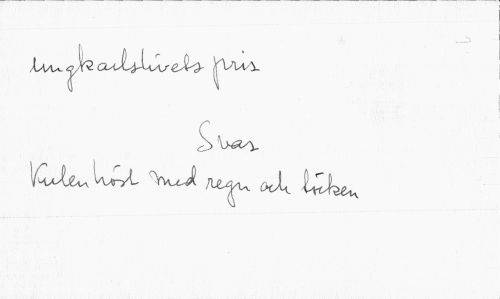 Ungkarlslivets pris
Svar
Kulen höst med regn och töcken